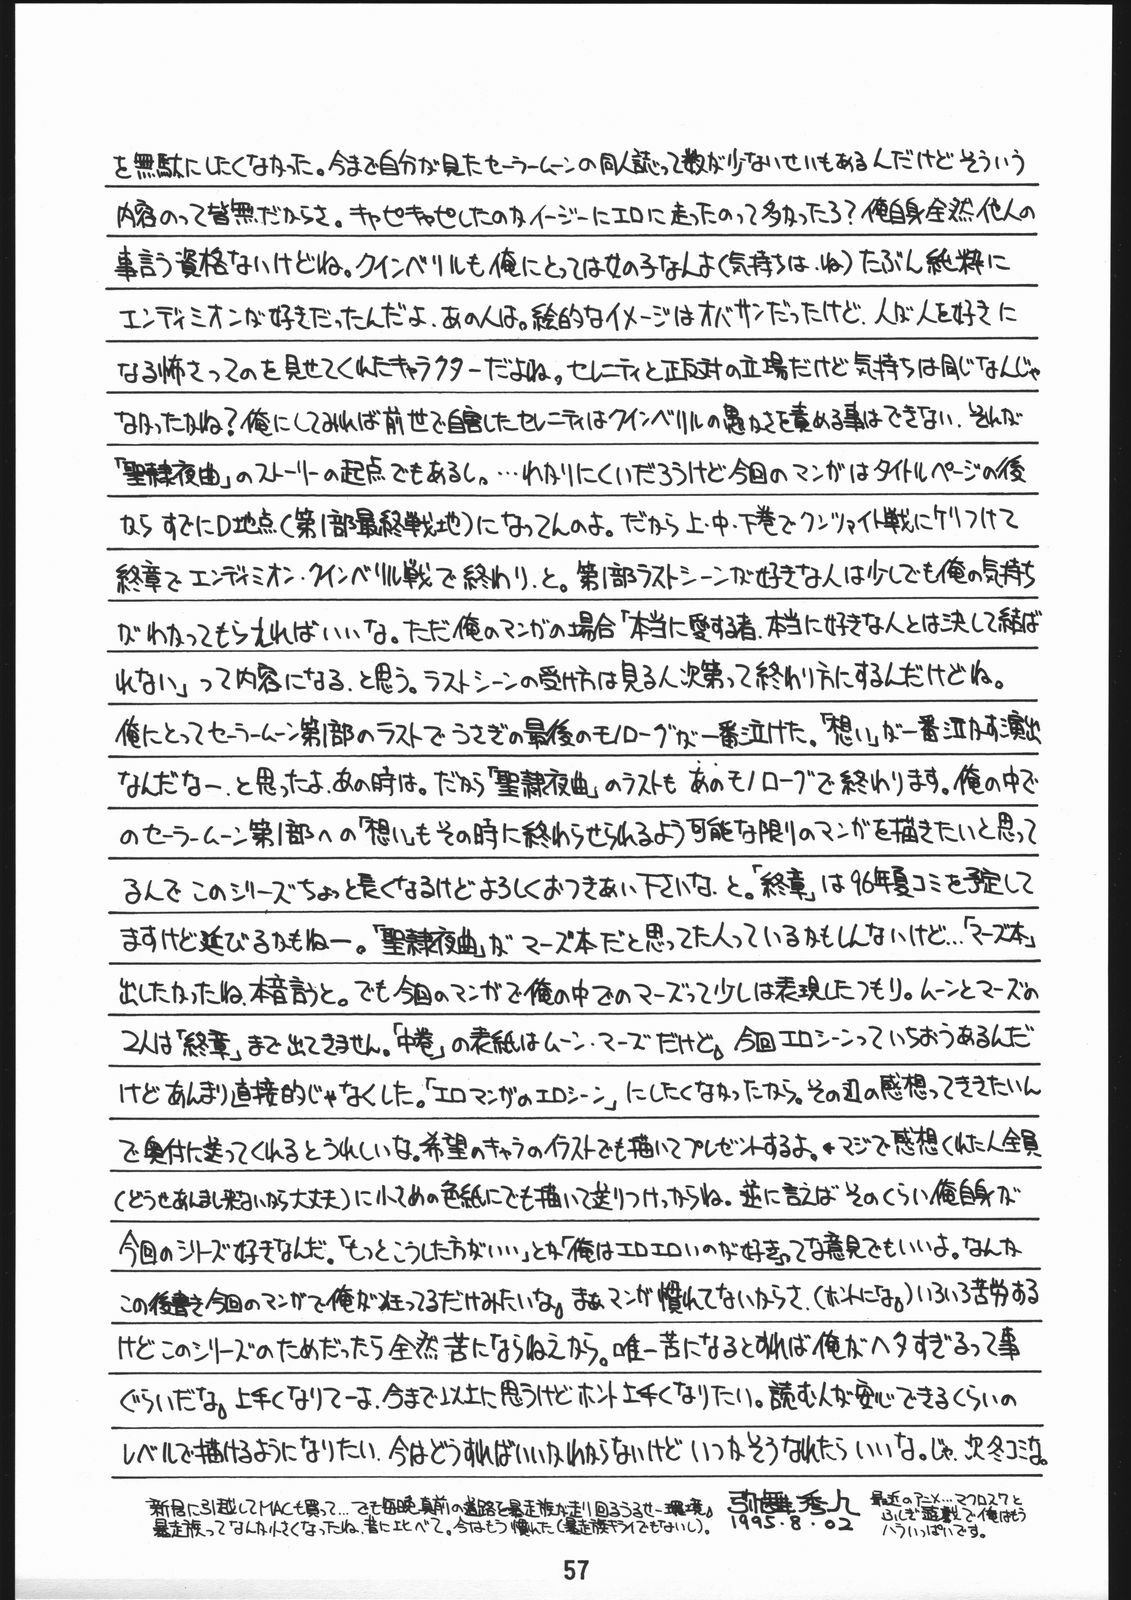 を無駄にしたくなかった。今まで自分が見たセーラームーンの同人誌って数が少ないせいもあるんだけどそういう
内容のって皆無だからさ。キャピキャピしたのかイージーにエロに走ったのって多かったろ?俺自身全然他人の
事言う資格ないけどね。クインベリルも俺にとっては女の子なんよ(気持ちは、ね)たぶん純粋に
エンディミオンが好きだったんだよ、あの人は。絵的なイメージはオバサンだったけど、人が人を好きに
なる怖さってのを見せてくれたキャラクターだよね。セレニティと正反対の立場だけど気持ちは同じなんじゃ
なかったかね?俺にしてみれば前世で自害したセレニティはクインベリルの愚かさを責める事はできない、それが
「聖隷夜曲」のストーリーの起点でもあるし。…わかりにくいだろうけど今回のマンガはタイトルページの後
ならすでにD地点(第1部最終戦地)になってんのよ。だから上・中・下巻でクンツァイト戦にケリつけて
終章でエンディミオン・クインベリル戦で終わり、と。第1部ラストシーンが好きな人は少しでも俺の気持ち
がわかってもらえればいいな。ただ俺のマンガの場合「本当に愛する者、本当に好きな人とは決して結ば
れない」って内容になる、と思う。ラストシーンの受け方は見る人次第って終わり方にするんだけどね。
俺にとってセーラームーン第1部のラストでうさぎの最後のモノローグが一番泣けた。「想い」が一番泣かす演出
なんだなー、と思ったよ、あの時は。だから「聖隷夜曲」のラストもあのモノローグで終わります。俺の中で
のセーラームーン第1部への「想い」もその時に終わらせられるよう可能な限りのマンガを描きたいと思って
るんでこのシリーズちょっと長くなるけどよろしくおつきあい下さいな、と。「終章」は96年夏コミを予定して
ますけど延びるかもねー。「聖隷夜曲」がマーズ本だと思ってた人っているかもしんないけど…「マーズ本」
出したかったね、本音言うと。でも今回のマンガで俺の中でのマーズって少しは表現したつもり。ムーンとマーズの
2人は「終章」まで出てきません。「中巻」の表紙はムーン・マーズだけど。今回エロシーンっていちおうあるんだ
けどあんまり直接的じゃなくした。「エロマンガのエロシーン」にしたくなかったから。その辺の感想ってききたいん
で奥付に送ってくれるとうれしいな。希望のキャラのイラストでも描いてプレゼントするよ。←マジで感想くれた人全員
(どうせあんまし来ないから大丈夫)に小さめの色紙にでも描いて送りつけっからね。逆に言えばそのくらい俺自身が
今回のシリーズ好きなんだ。「もっとこうした方がいい」とか「俺はエロエロいのが好き」ってな意見でもいいよ。なんか
この後書き今回のマンガで俺が狂ってるだけみたいな。まぁマンガ慣れてないからさ、(ホントにな。)いろいろ苦労する
けどこのシリーズのためだったら全然苦にならねえから。唯一苦になるとすれば俺がヘタすぎるって事
ぐらいだな。上手くなりてーよ、今まで以上に思うけどホント上手くなりたい。読む人が安心できるくらいの
レベルで描けるようになりたい、今はどうすればいいかわからないけどいつかそうなれたらいいな。じゃ、次冬コミな。
新居に引越してMACも買って…でも毎晩真前の道路を暴走族が走り回るうるせー環境。
暴走族ってなんか小さくなったね、昔に比べて。今はもう慣れた(暴走族キライでもないし)。
1995.8.02
最近のアニメ…マクロス7と
ふしぎ遊戯で俺はもう
ハラいっぱいです。
57